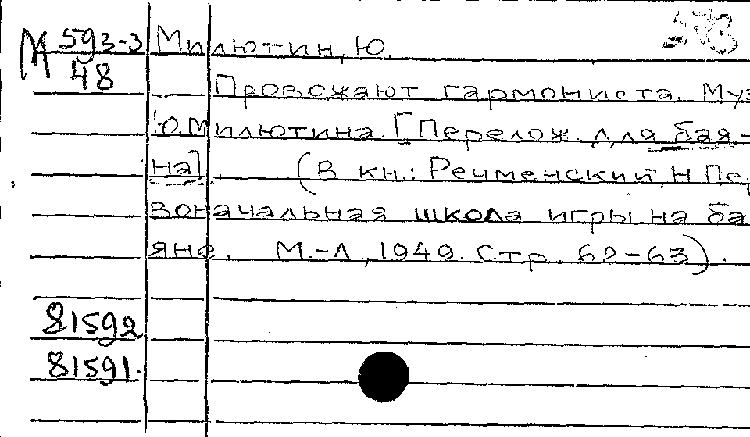 М 593-3 Милютин, Ю.
48 Провожают гармониста. Муз
Ю. Милютина. [Перелож. для бая-
на] (В кн.: Речменский, Н Пер
воначальная школа игры на ба
яне. М.-Л, 1949. Стр. 62-63).
81592
81591.